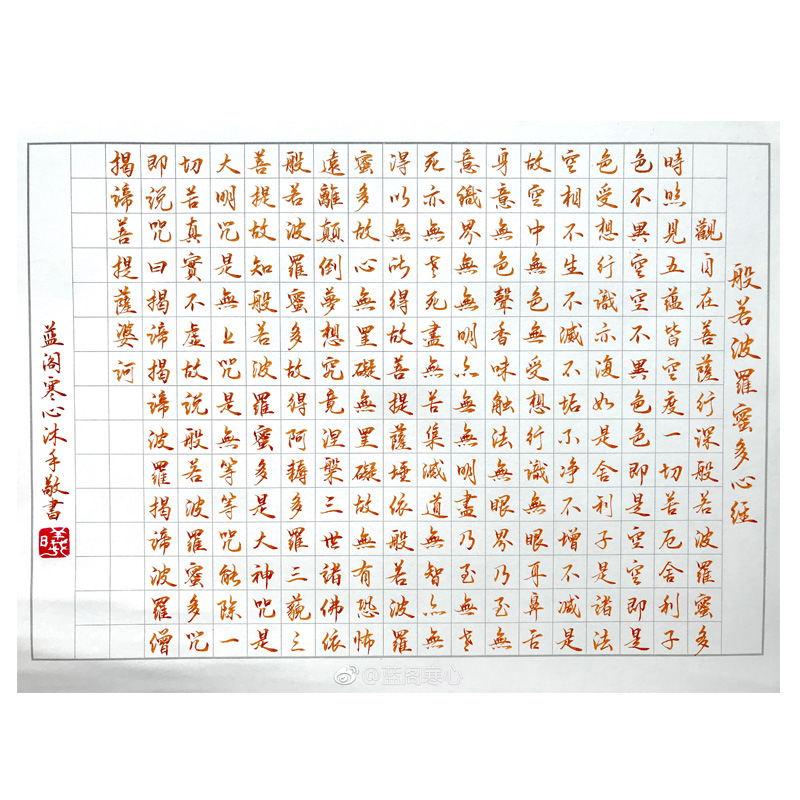 般若波羅蜜多心經
觀自在菩薩行深般若波羅蜜多
時照見五蘊皆空度一切苦厄舍利子
色不異空空不異色色即是空空即是
色受想行識亦復如是舍利子是諸法
空相不生不滅不垢不净不增不減是
故空中無色無受想行識無眼耳鼻舌
身意無色聲香味触法無眼界乃至無
意識界無無明亦無無明盡乃至無老
死亦無老死盡無苦集滅道無智亦無
得以無所得故菩提薩埵依般若波羅
蜜多故心無罣礙無罣礙故無有恐怖
遠離顛倒夢想究竟涅槃三世諸佛依
般若波羅蜜多故得阿耨多羅三藐三
菩提故知般若波羅蜜多是大神咒是
大明咒是無上咒是無等等咒能除一
切苦真實不虛故說般若波羅蜜多咒
即說咒曰揭諦揭諦波羅揭諦波羅僧
揭諦菩提薩婆訶
蓝阁寒心沐手敬書
@蓝阁寒心